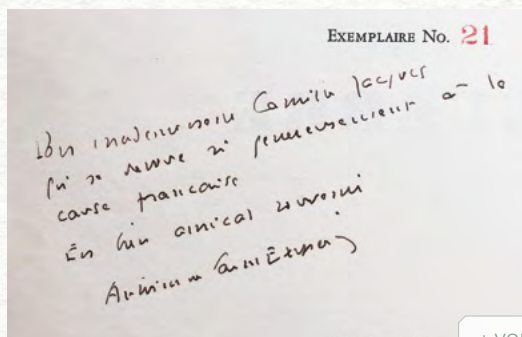 EXEMPLAIRE No. 21
Pour mademoiselle Camille Jacques
qui se dévoue si genereusement à la
cause francaise
En bien amical souvenir
Antoine de Saint Exupery
+ VO